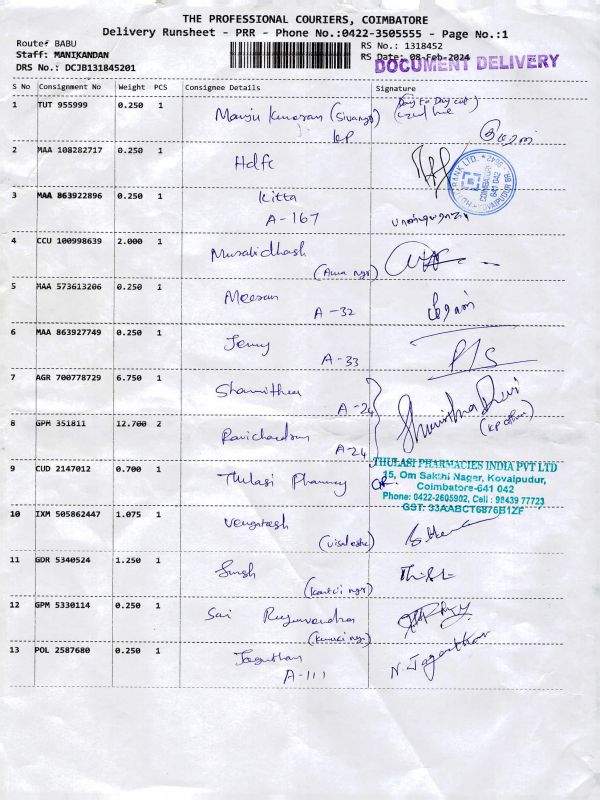 THE PROFESSIONAL COURIERS, COIMBATORE
Delivery Runsheet - PRR - Phone No.:0422-3505555 - Page No.:1
Route: BABU
RS No.: 1318452
Staff: MANIKANDAN
RS Date: 08-Feb-2024
DOCUMENT DELIVERY
DRS No.: DCJB131845201
S No Consignment No Weight PCS Consignee Details Signature
1 TUT 955999 0.250 1 Manju Kumaran
KP
2 MAA 108282717 0.250 1 Hdfc
COIMBATORE 641 042
3 MAA 863922896 0.250 1 Kitta
A-167
4 CCU 100998639 2.000 1 Muralidhash
5 MAA 573613206 0.250 1 Meeran
A-32
6 MAA 863927749 0.250 1 Jenny
A-33
7 AGR 700778729 6.750 1 Shamithra
A-24
8 GPM 351811 12.700 2 Ravichandran
A-24
9 CUD 2147012 0.700 1 Thulasi Pharmacy
THULASI PHARMACIES INDIA PVT LTD
15, Om Sakthi Nagar, Kovaipudur,
Coimbatore-641 042
Phone: 0422-2605902, Cell : 98439 77723
GST: 33AABCT6876B1ZF
10 IXM 505862447 1.075 1 Vengatesh
11 GDR 5340524 1.250 1
12 GPM 5330114 0.250 1 Sai Ragavendra
13 POL 2587680 0.250 1 Jaganthan
A-111
N. Jaganthan